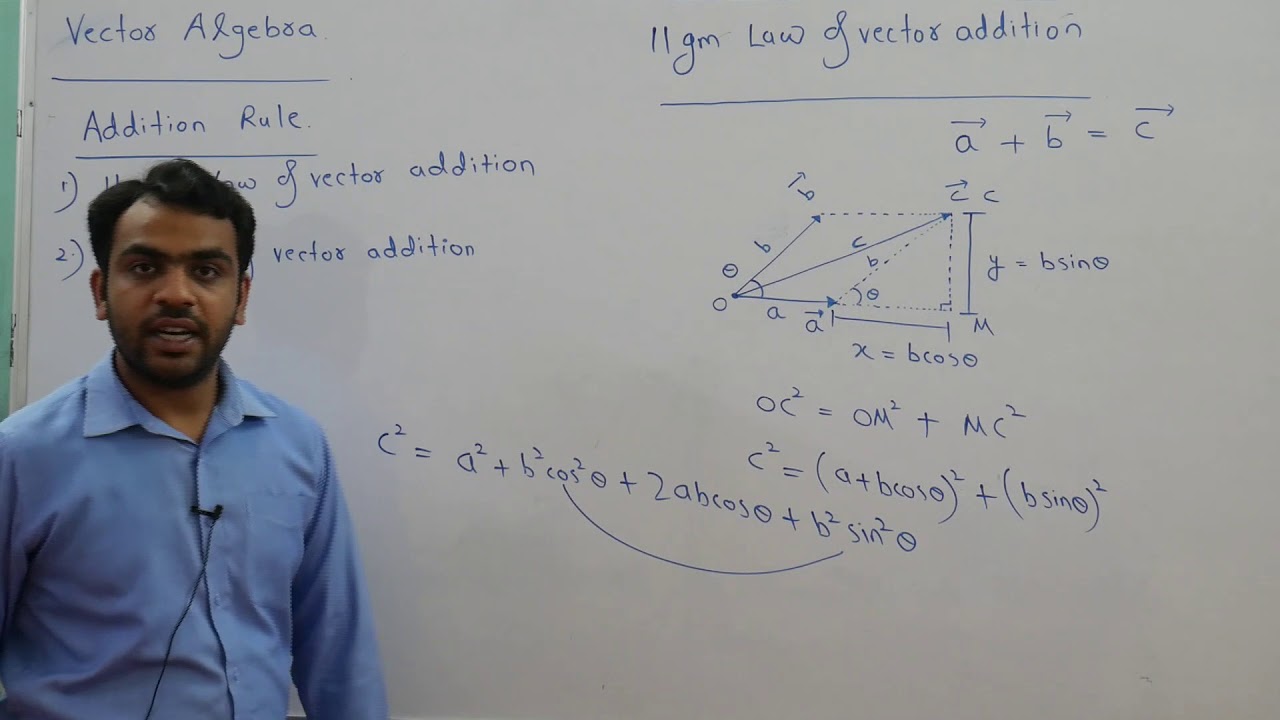 Vector Algebra.
Addition Rule.
1) law of vector addition
2.) vector addition
||gm Law of vector addition
a⃗ + b⃗ = c⃗
b⃗
c⃗ C
b
c
b
θ
θ
O
a
a⃗
y = bsinθ
M
x = bcosθ
OC² = OM² + MC²
c² = (a+bcosθ)² + (bsinθ)²
c² = a² + b²cos²θ + 2abcosθ + b²sin²θ